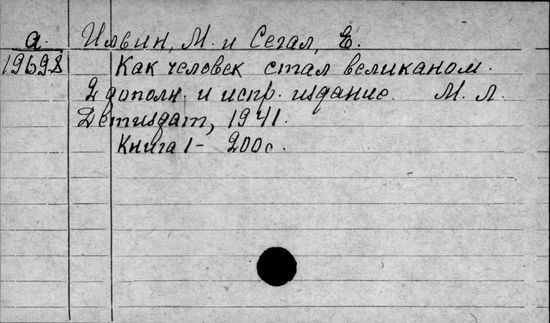 a Ильин, М. и Сегал, Е.
19698 Как человек стал великаном.
2 дополн. и испр. издание. М. Л.
Детиздат, 1941.
Книга 1 - 200с.